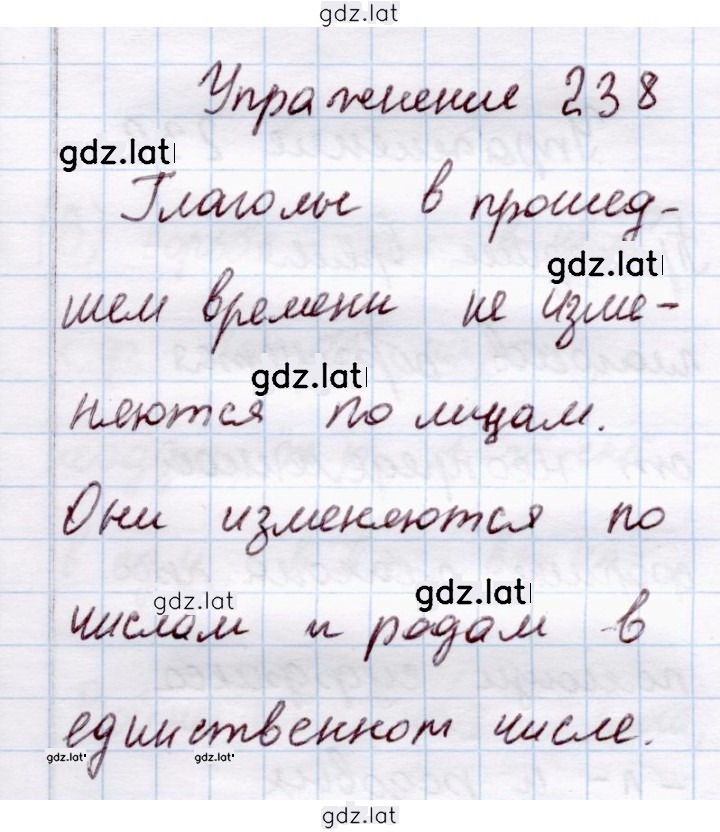 gdz.lat
Упражнение 238
gdz.lat
Глаголы в прошед-
gdz.lat
шем времени не изме-
gdz.lat
няются по лицам.
Они изменяются по
gdz.lat
gdz.lat
числам и родам в
единственном числе.
gdz.lat
gdz.lat
gdz.lat